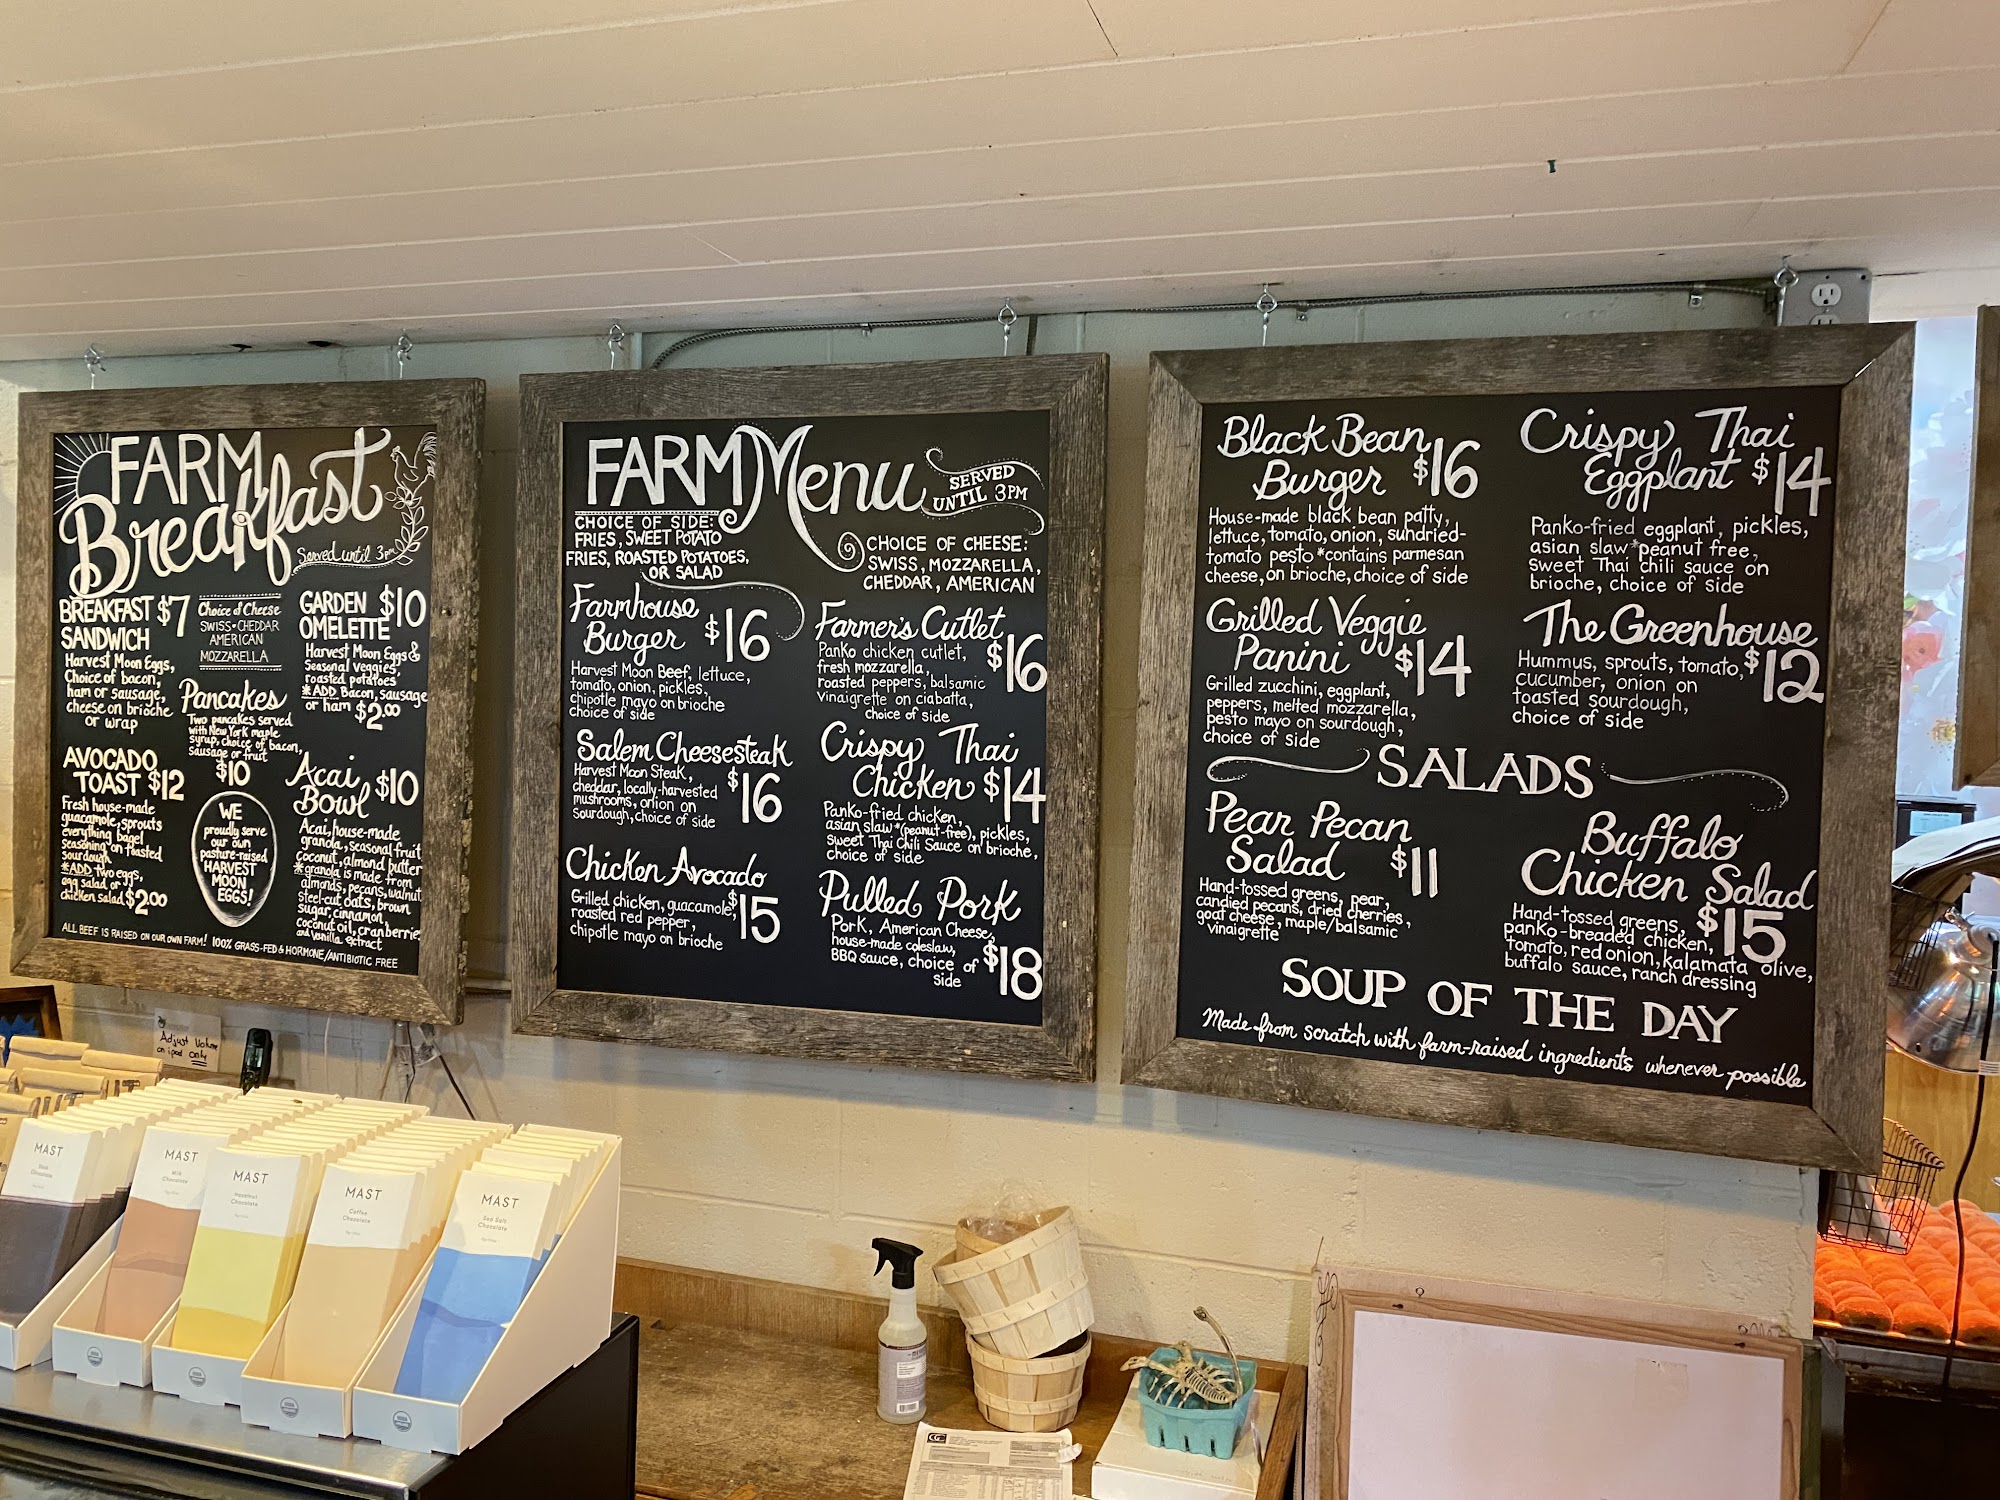 FARM
Breakfast
Served until 3pm
BREAKFAST $7
SANDWICH
Harvest Moon Eggs,
Choice of bacon,
ham or sausage,
cheese on brioche
or wrap
AVOCADO
TOAST $12
Fresh house-made
guacamole, sprouts
everything bagel
seasoning on toasted
sourdough
*ADD two eggs,
egg salad or
chicken salad $2.00
Choice of Cheese
SWISS • CHEDDAR
AMERICAN
MOZZARELLA
Pancakes
Two pancakes served
with New York maple
syrup, choice of bacon,
Sausage or fruit
$10
WE
proudly serve
our own
pasture-raised
HARVEST
MOON
EGGS!
GARDEN $10
OMELETTE
Harvest Moon Eggs &
Seasonal veggies,
roasted potatoes
*ADD Bacon, sausage
or ham $2.00
Acai
Bowl $10
Acai, house-made
granola, seasonal fruit,
coconut, almond butter
*granola is made from
almonds, pecans, walnut,
steel-cut oats, brown
sugar, cinnamon,
coconut oil, cranberries
and vanilla extract
ALL BEEF IS RAISED ON OUR OWN FARM! 100% GRASS-FED & HORMONE/ANTIBIOTIC FREE
FARM Menu
SERVED
UNTIL 3PM
CHOICE OF SIDE:
FRIES, SWEET POTATO
FRIES, ROASTED POTATOES,
OR SALAD
CHOICE OF CHEESE:
SWISS, MOZZARELLA,
CHEDDAR, AMERICAN
Farmhouse
Burger $16
Harvest Moon Beef, lettuce,
tomato, onion, pickles,
chipotle mayo on brioche
choice of side
Salem Cheesesteak
$16
Harvest Moon Steak,
cheddar, locally-harvested
mushrooms, onion on
Sourdough, choice of side
Chicken Avocado
$15
Grilled chicken, guacamole,
roasted red pepper,
chipotle mayo on brioche
Farmer's Cutlet
$16
Panko chicken cutlet,
fresh mozzarella,
roasted peppers, balsamic
vinaigrette on ciabatta,
choice of side
Crispy Thai
Chicken $14
Panko-fried chicken,
asian slaw *(peanut-free), pickles,
sweet Thai Chili Sauce on brioche,
choice of side
Pulled Pork
$18
Pork, American Cheese,
house-made coleslaw,
BBQ sauce, choice of
side
Black Bean
Burger $16
House-made black bean patty,
lettuce, tomato, onion, sundried-
tomato pesto *contains parmesan
cheese, on brioche, choice of side
Grilled Veggie
Panini $14
Grilled zucchini, eggplant,
peppers, melted mozzarella,
pesto mayo on sourdough,
choice of side
Crispy Thai
Eggplant $14
Panko-fried eggplant, pickles,
asian slaw *peanut free,
sweet Thai chili sauce on
brioche, choice of side
The Greenhouse
$12
Hummus, sprouts, tomato,
cucumber, onion on
toasted sourdough,
choice of side
SALADS
Pear Pecan
Salad $11
Hand-tossed greens, pear,
candied pecans, dried cherries,
goat cheese, maple/balsamic
vinaigrette
Buffalo
Chicken Salad
$15
Hand-tossed greens,
panko-breaded chicken,
tomato, red onion, kalamata olive,
buffalo sauce, ranch dressing
SOUP OF THE DAY
Made from scratch with farm-raised ingredients whenever possible
Adjust Volume
on ipad only
MAST
Dark
Chocolate
MAST
Milk
Chocolate
MAST
Hazelnut
Chocolate
MAST
Coffee
Chocolate
MAST
Sea Salt
Chocolate